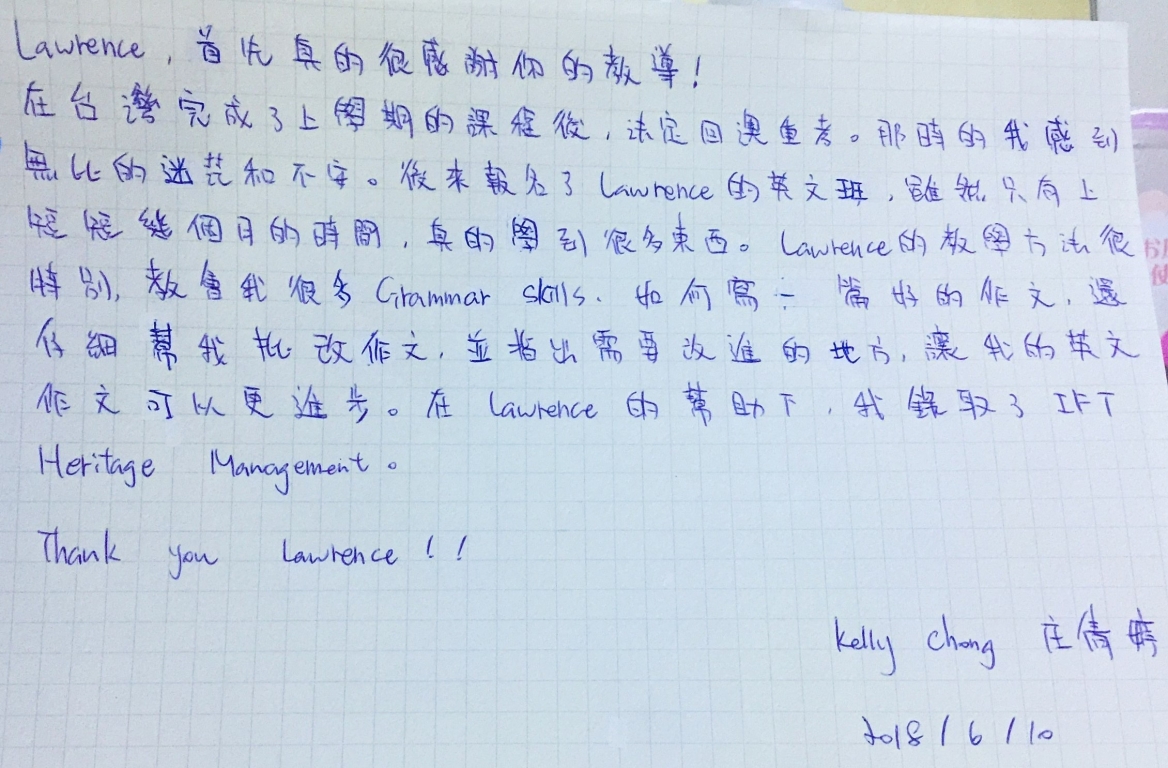 Lawrence, 首先真的很感謝你的教導！
在台灣完成了上學期的課程後，決定回澳重考。那時的我感到
無比的迷茫和不安。後來報名了Lawrence的英文班，雖然只有上
短短幾個月的時間，真的學到很多東西。Lawrence的教學方法很
特別，教會我很多Grammar skills. 如何寫一篇好的作文，還
仔細幫我批改作文，並指出需要改進的地方，讓我的英文
作文可以更進步。在Lawrence的幫助下，我錄取了IFT
Heritage Management。
Thank you Lawrence！！
Kelly Chong 庄倩婷
2018/6/10